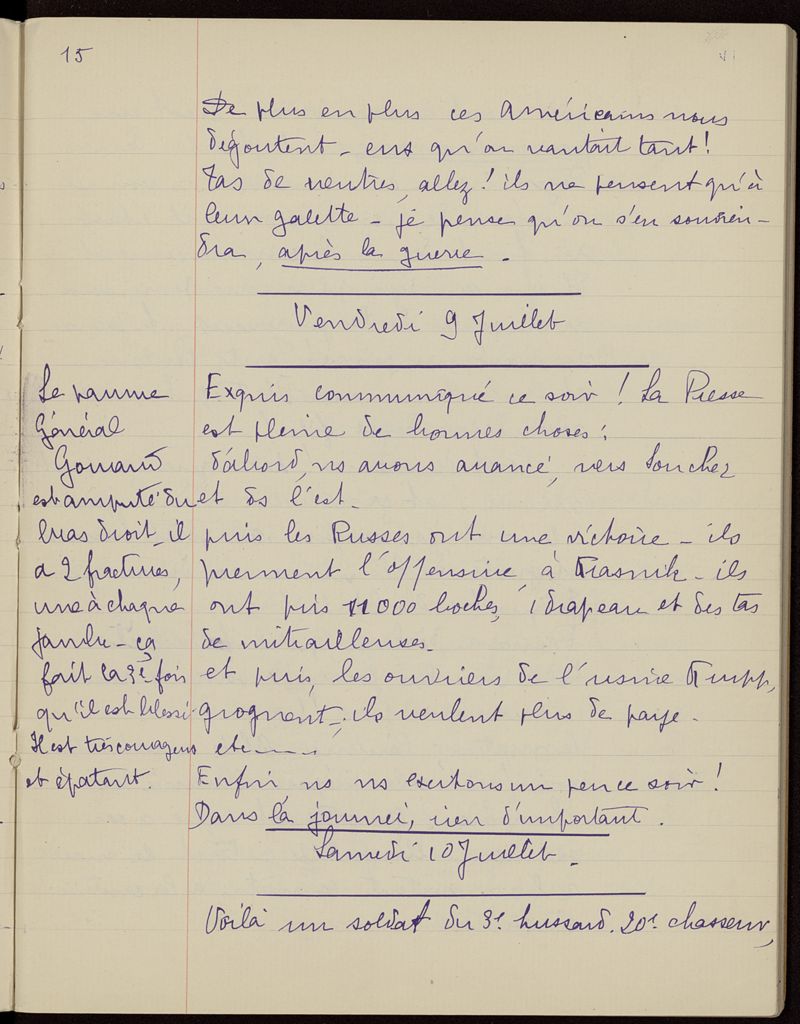 15
De plus en plus ces Américains nous
dégoutent - eux qu'on vantait tant!
Tas de neutres, allez! ils ne pensent qu'à
leur galette - je pense qu'on s'en souvien-
dra, après la guerre.
Vendredi 9 Juillet
Exquis communiqué ce soir! La Presse
est pleine de bonnes choses:
d'abord, ns avons avancé, vers Souchez
et ds l'est.
puis les Russes ont une victoire - ils
prennent l'offensive, à Krasnik - ils
ont pris 11000 boches, 1 drapeau et des tas
de mitrailleuses.
et puis, les ouvriers de l'usine Krupp,
grognent; ils veulent plus de paye.
etc
Enfin, ns ns excitons un peu ce soir!
Dans la journée, rien d'important.
Le pauvre
Général
Gouraud
est amputé du
bras droit, il
a 2 fractures,
une à chaque
jambe - ça
fait la 3e fois
qu'il est blessé.
Il est très courageux
et épatant.
Samedi 10 Juillet -
Voilà un soldat du 3e hussard. 20e chasseur,